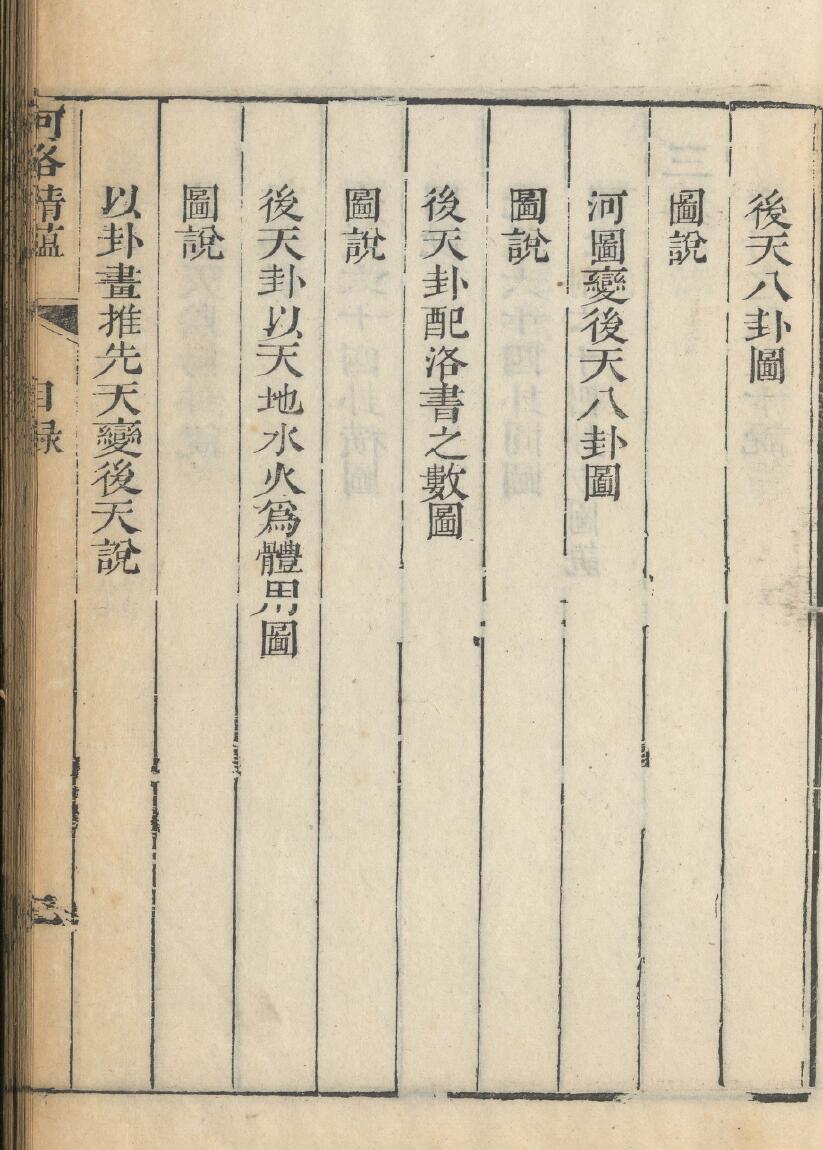 後天八卦圖
圖說
河圖變後天八卦圖
圖說
後天卦配洛書之數圖
圖說
後天卦以天地水火爲體用圖
圖說
以卦畫推先天變後天說
河洛精蘊
目録